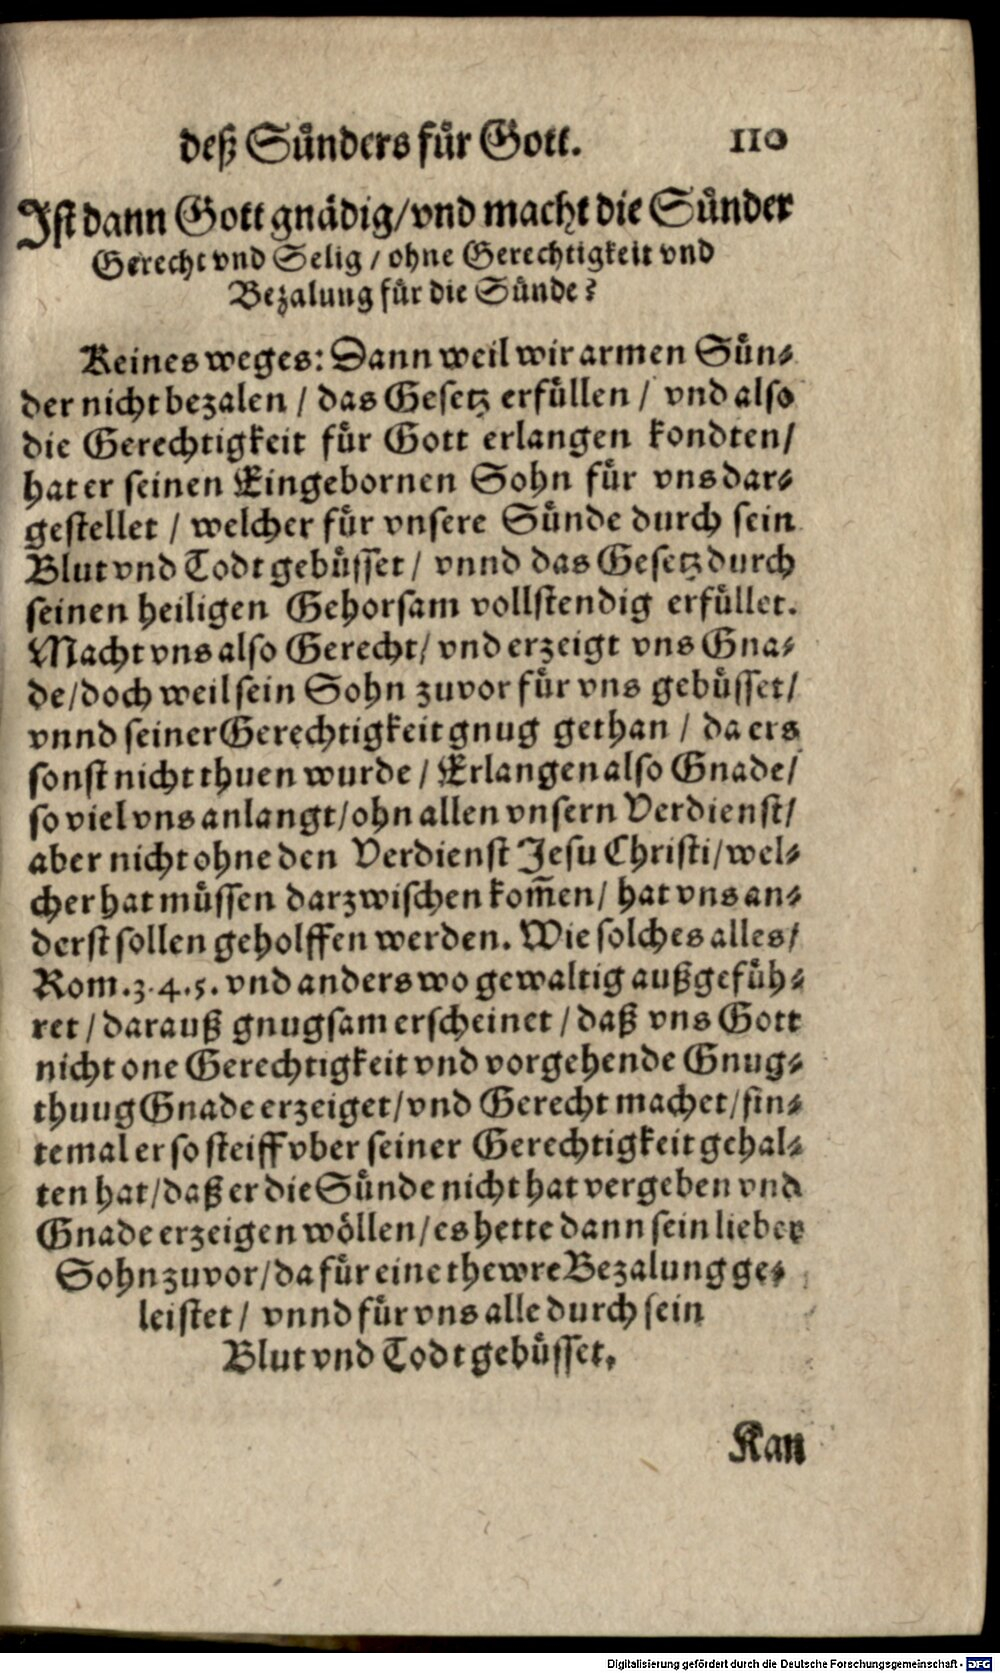 deß Sünders für Gott. 110
Ist dann Gott gnädig/vnd macht die Sünder
Gerecht vnd Selig / ohne Gerechtigkeit vnd
Bezalung für die Sünde?
Keines weges: Dann weil wir armen Sün-
der nicht bezalen / das Gesetz erfüllen / vnd also
die Gerechtigkeit für Gott erlangen kondten/
hat er seinen Eingebornen Sohn für vns dar-
gestellet / welcher für vnsere Sünde durch sein
Blut vnd Todt gebüsset / vnnd das Gesetz durch
seinen heiligen Gehorsam vollstendig erfüllet.
Macht vns also Gerecht/ vnd erzeigt vns Gna-
de/doch weil sein Sohn zuvor für vns gebüsset/
vnnd seiner Gerechtigkeit gnug gethan / da ers
sonst nicht thuen wurde / Erlangen also Gnade/
so viel vns anlangt/ohn allen vnsern Verdienst/
aber nicht ohne den Verdienst Jesu Christi/wel-
cher hat müssen darzwischen kom̃en/ hat vns an-
derst sollen geholffen werden. Wie solches alles/
Rom.3.4.5. vnd anderswo gewaltig außgefüh-
ret / darauß gnugsam erscheinet / daß vns Gott
nicht one Gerechtigkeit vnd vorgehende Gnug-
thuug Gnade erzeiget/vnd Gerecht machet/sin-
temal er so steiff vber seiner Gerechtigkeit gehal-
ten hat/daß er die Sünde nicht hat vergeben vnd
Gnade erzeigen wöllen/es hette dann sein lieber
Sohn zuvor/da für eine thewre Bezalung ge-
leistet / vnnd für vns alle durch sein
Blut vnd Todt gebüsset.
Kan
Digitalisierung gefördert durch die Deutsche Forschungsgemeinschaft - DFG